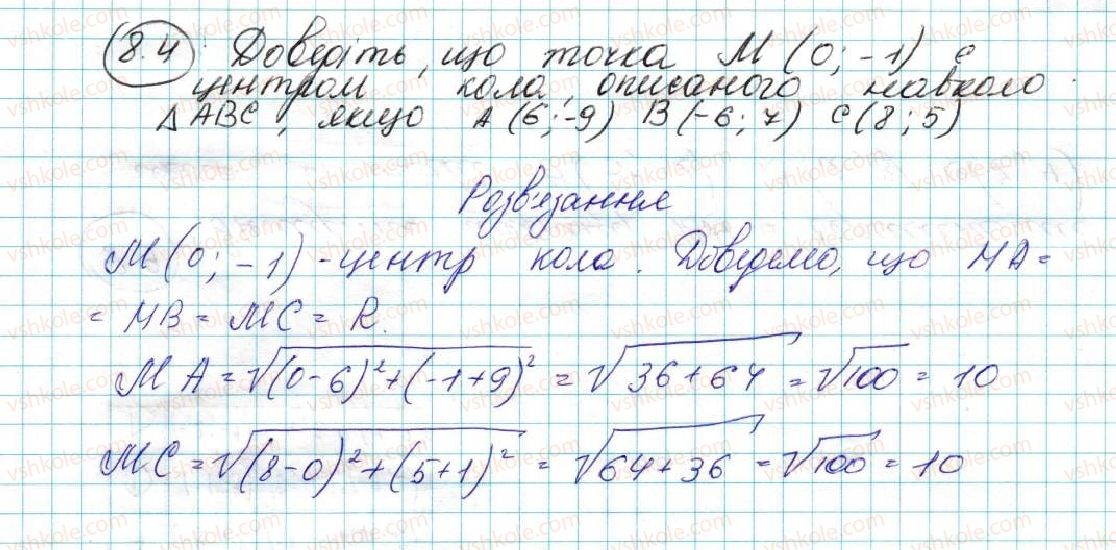 8.4 Доведіть, що точка М (0; -1) є
центром кола, описаного навколо
△ АВС, якщо А (6; -9) В (-6; 7) С (8; 5)
Розв'язання
М (0; -1) - центр кола. Доведемо, що МА =
= МВ = МС = R.
МА = √((0-6)²+(-1+9)²) = √(36+64) = √100 = 10
МС = √((8-0)²+(5+1)²) = √(64+36) = √100 = 10